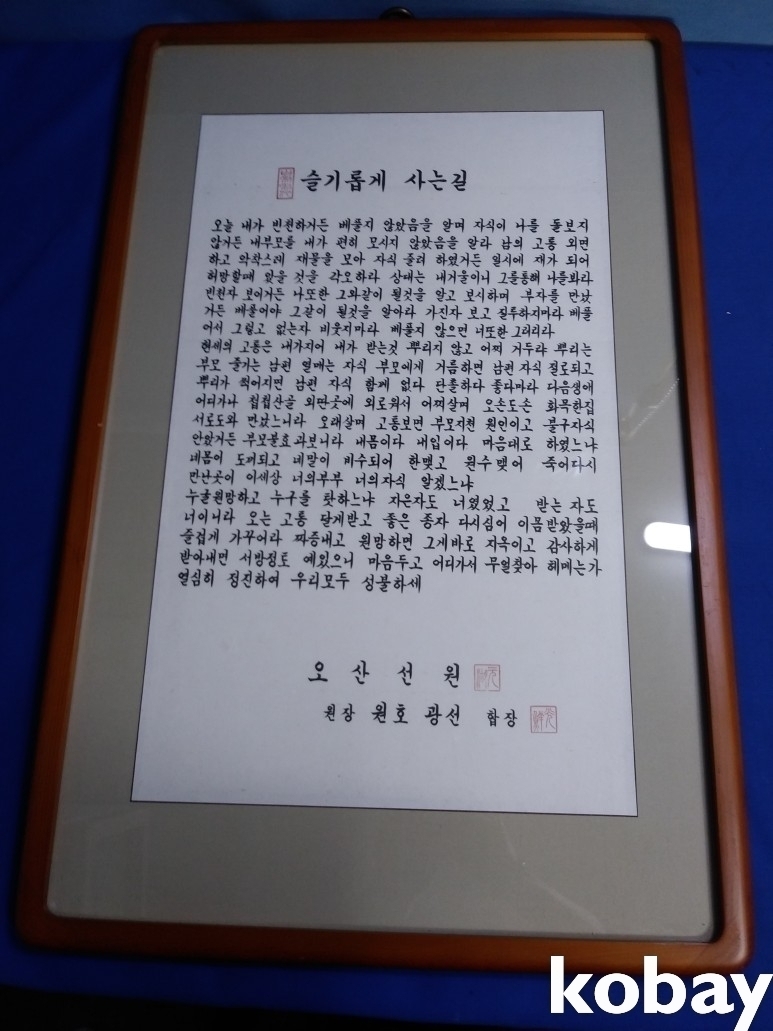 슬기롭게 사는길
오늘 내가 빈천하거든 베풀지 않았음을 알며 자식이 나를 돌보지
않거든 내부모를 내가 편히 모시지 않았음을 알라 남의 고통 외면
하고 악착스레 재물을 모아 자식 줄려 하였거든 일시에 재가 되어
허망할때 있을 것을 각오하라 상대는 내거울이니 그를통해 나를봐라
빈천자 보이거든 나또한 그와같이 될것을 알고 보시하며 부자를 만났
거든 베풀어야 그같이 될것을 알아라 가진자 보고 질투하지마라 베풀
어서 그렇고 없는자 비웃지마라 베풀지 않으면 너또한 그러리라
현세의 고통은 내가지어 내가 받는것 뿌리지 않고 어찌 거두랴 뿌리는
부모 줄기는 남편 열매는 자식 부모에게 거름하면 남편 자식 절로되고
뿌리가 썩어지면 남편 자식 함께 없다 단촐하다 좋다마라 다음생애
어디가나 첩첩산골 외딴곳에 외로워서 어찌살며 오손도손 화목한집
서로도와 만났느니라 오래살며 고통보면 부모지천 원인이고 불구자식
안았거든 부모불효과보니라 내몸이다 내입이다 마음대로 하였느냐
네몸이 도끼되고 네말이 비수되어 한맺고 원수 맺어 죽어다시
만난곳이 이세상 너의부부 너의자식 알겠느냐
누굴원망하고 누구를 탓하느냐 지은자도 너였었고 받는 자도
너이니라 오는 고통 달게받고 좋은 종자 다시심어 이몸 받았을때
즐겁게 가꾸어라 짜증내고 원망하면 그게바로 지옥이고 감사하게
받아내면 서방정토 예있으니 마음두고 어디가서 무얼찾아 헤메는가
열심히 정진하여 우리모두 성불하세
오산선원
원장 원호 광선 합장
kobay